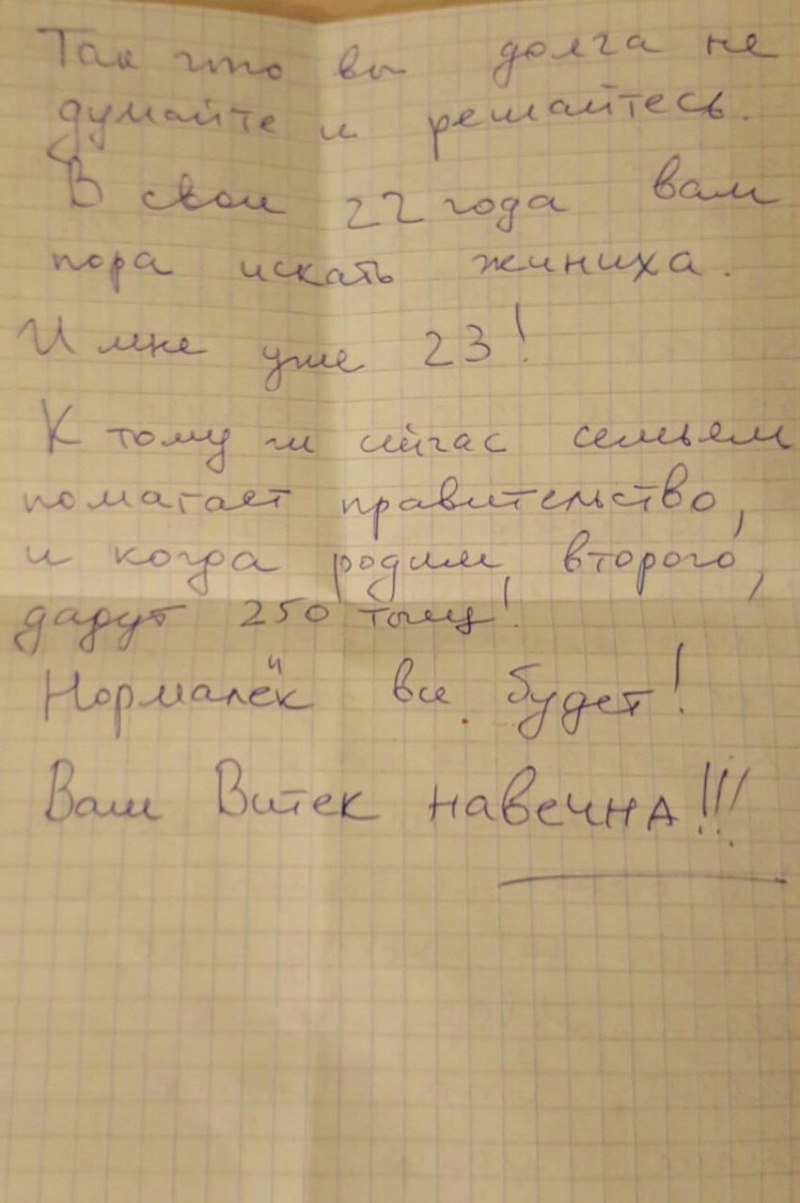 Так что вы долга не
думайте и решайтесь.
В свои 22 года вам
пора искать жиниха.
И мне уже 23!
К тому ж сейчас семьям
помагает правительство,
и когда родим второго,
дадут 250 тыщ!
Нормалёк все будет!
Ваш Витек навечна!!!